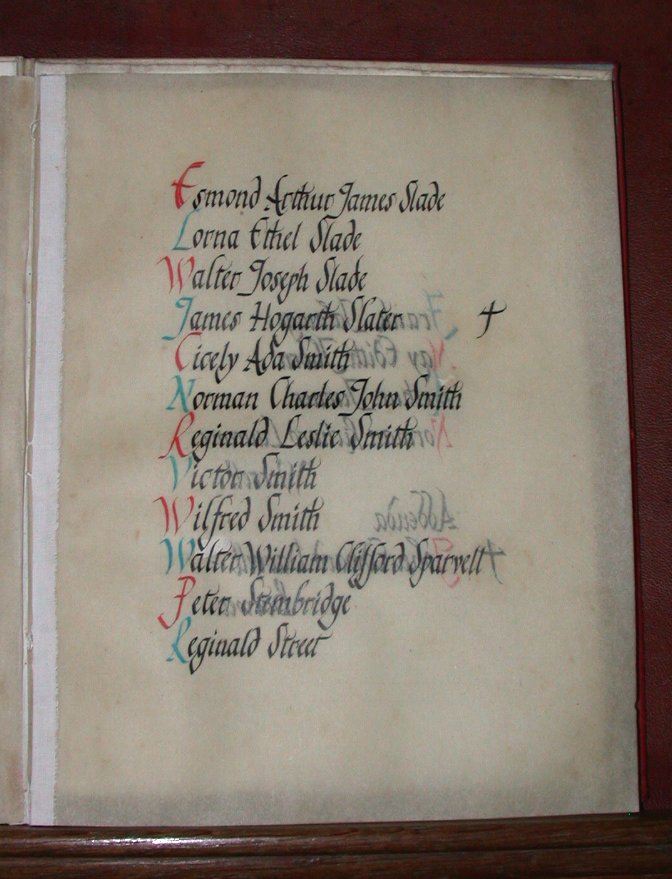 Esmond Arthur James Slade
Lorna Ethel Slade
Walter Joseph Slade
James Hogarth Slater †
Cicely Ada Smith
Norman Charles John Smith
Reginald Leslie Smith
Victor Smith
Wilfred Smith
Walter William Clifford Sparvell
Peter Stembridge
Reginald Street
Addenda